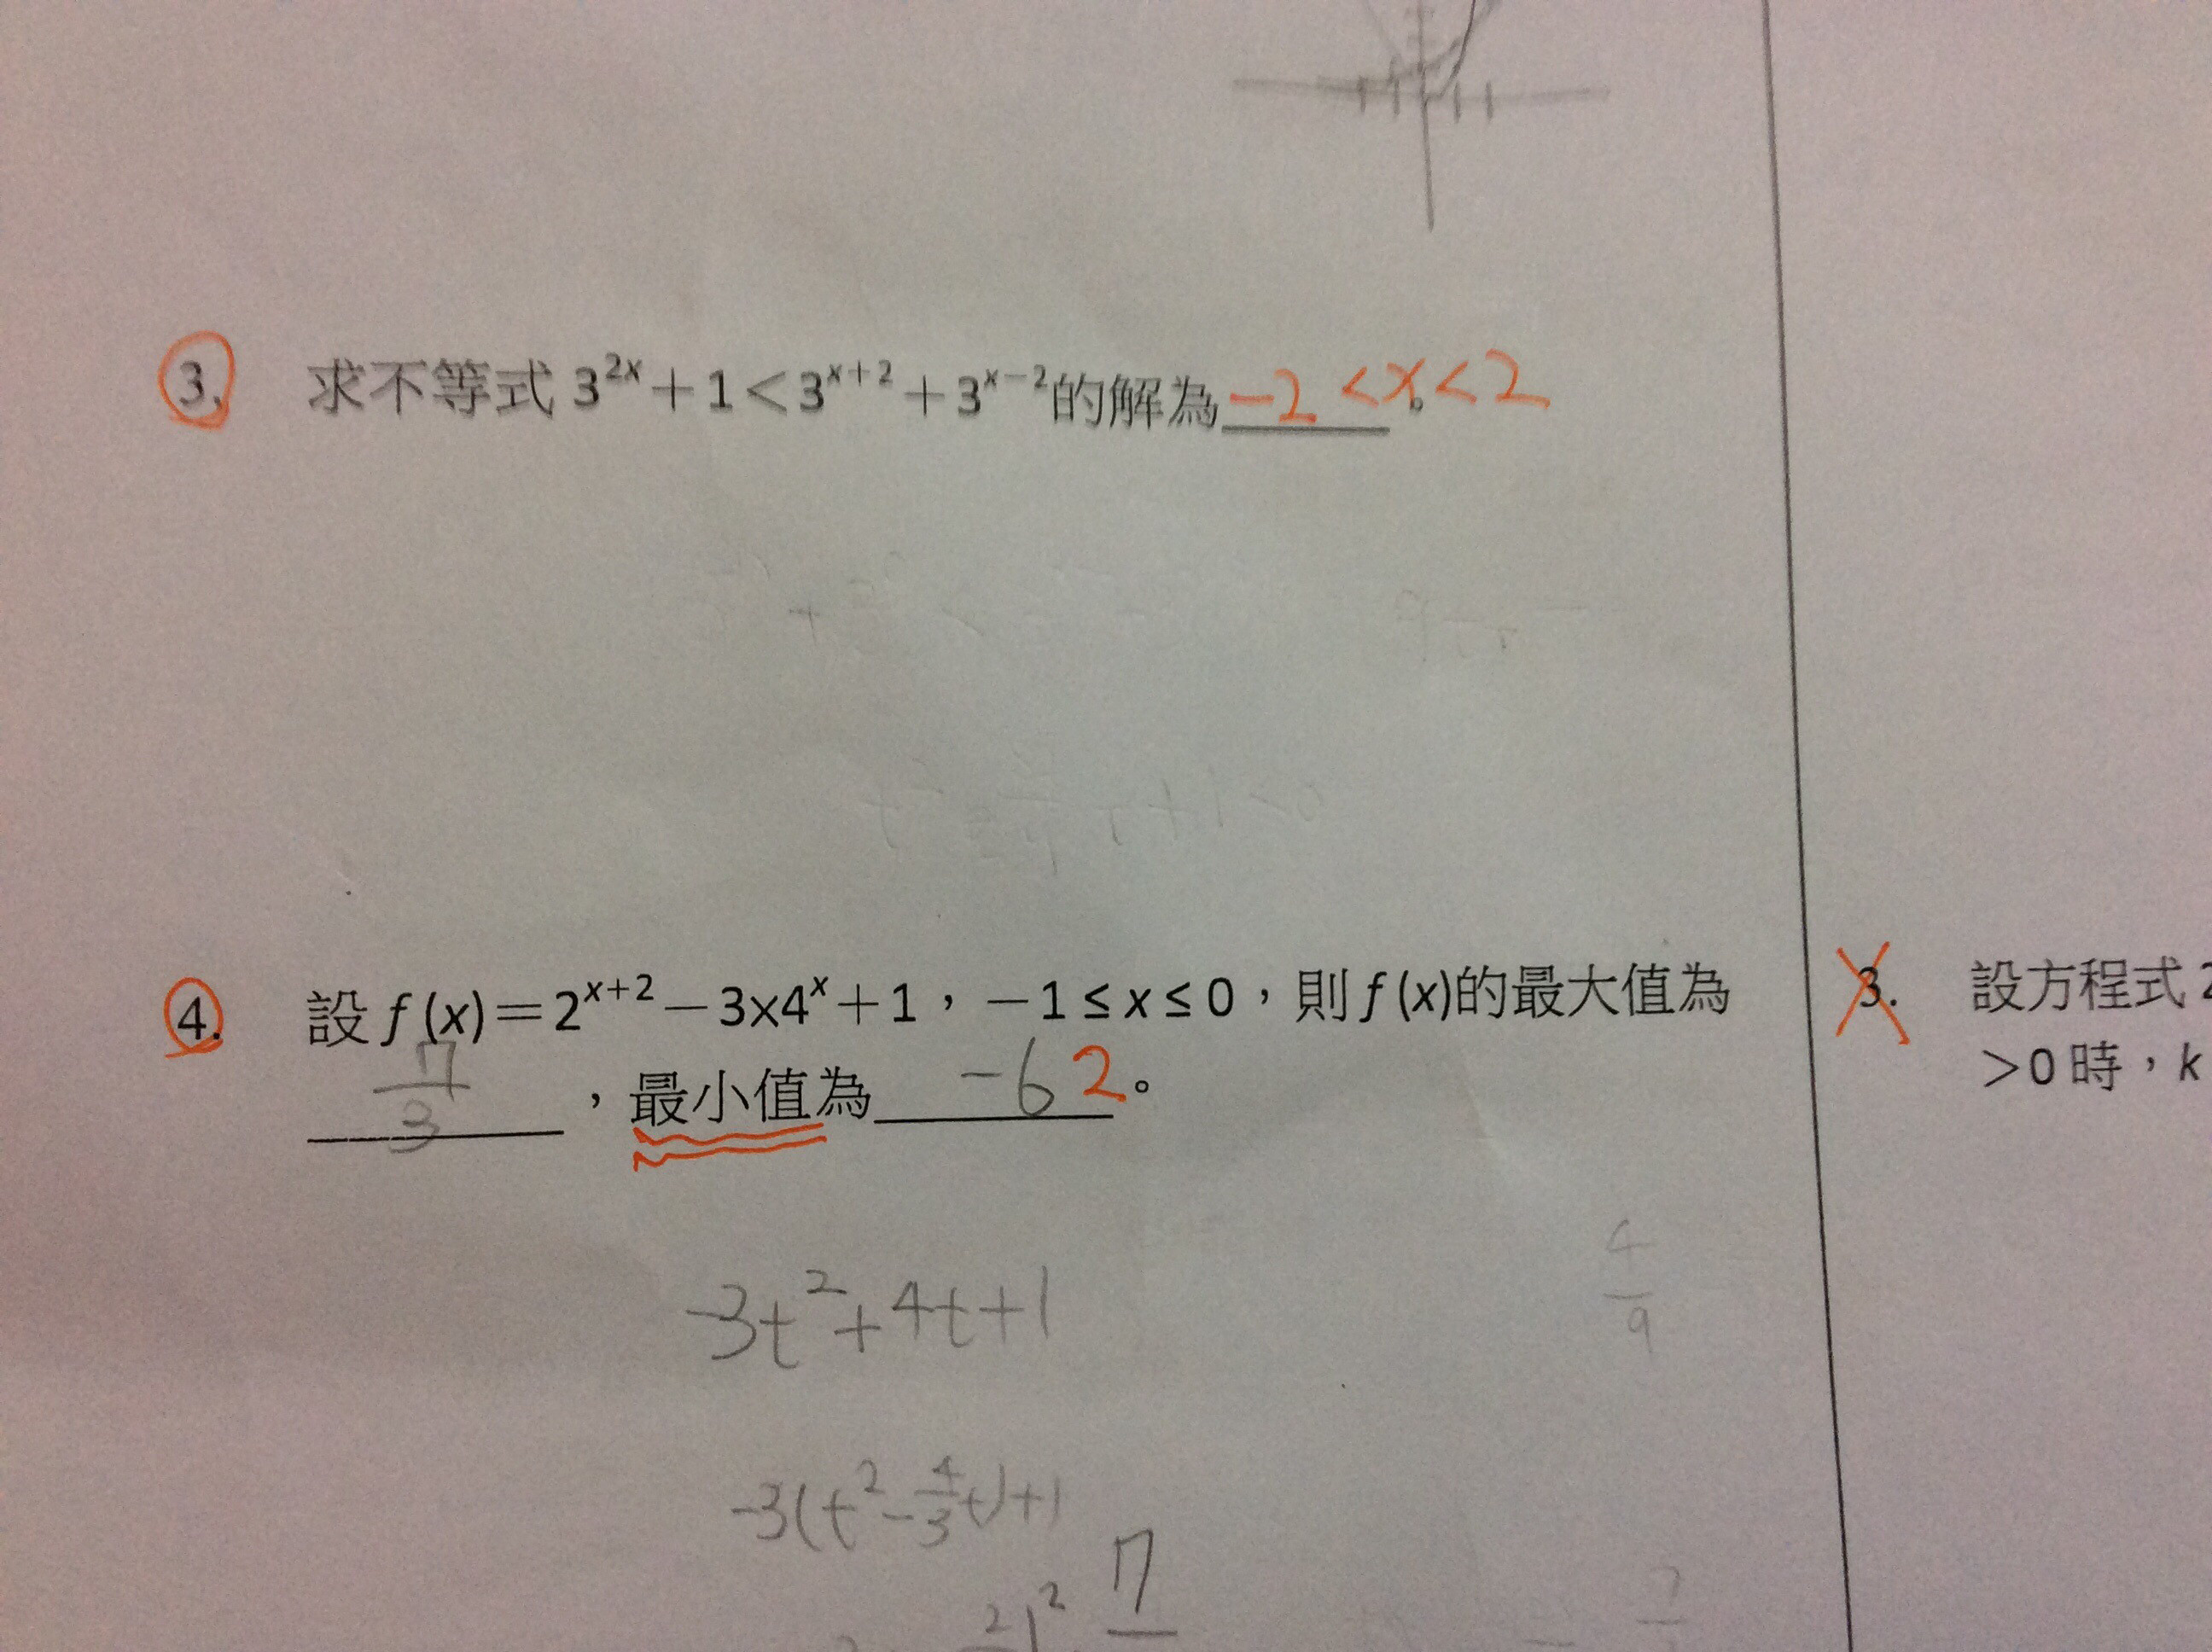 3. 求不等式 3^{2x}+1<3^{x+2}+3^{x-2}的解為 -2<x<2。
4. 設 f(x)=2^{x+2}-3x4^x+1，-1≤x≤0，則 f(x)的最大值為
7/3，最小值為 -6 2。
-3t²+4t+1
4/9
-3(t²-4/3t)+1
7
3. 設方程式 2
>0 時，k